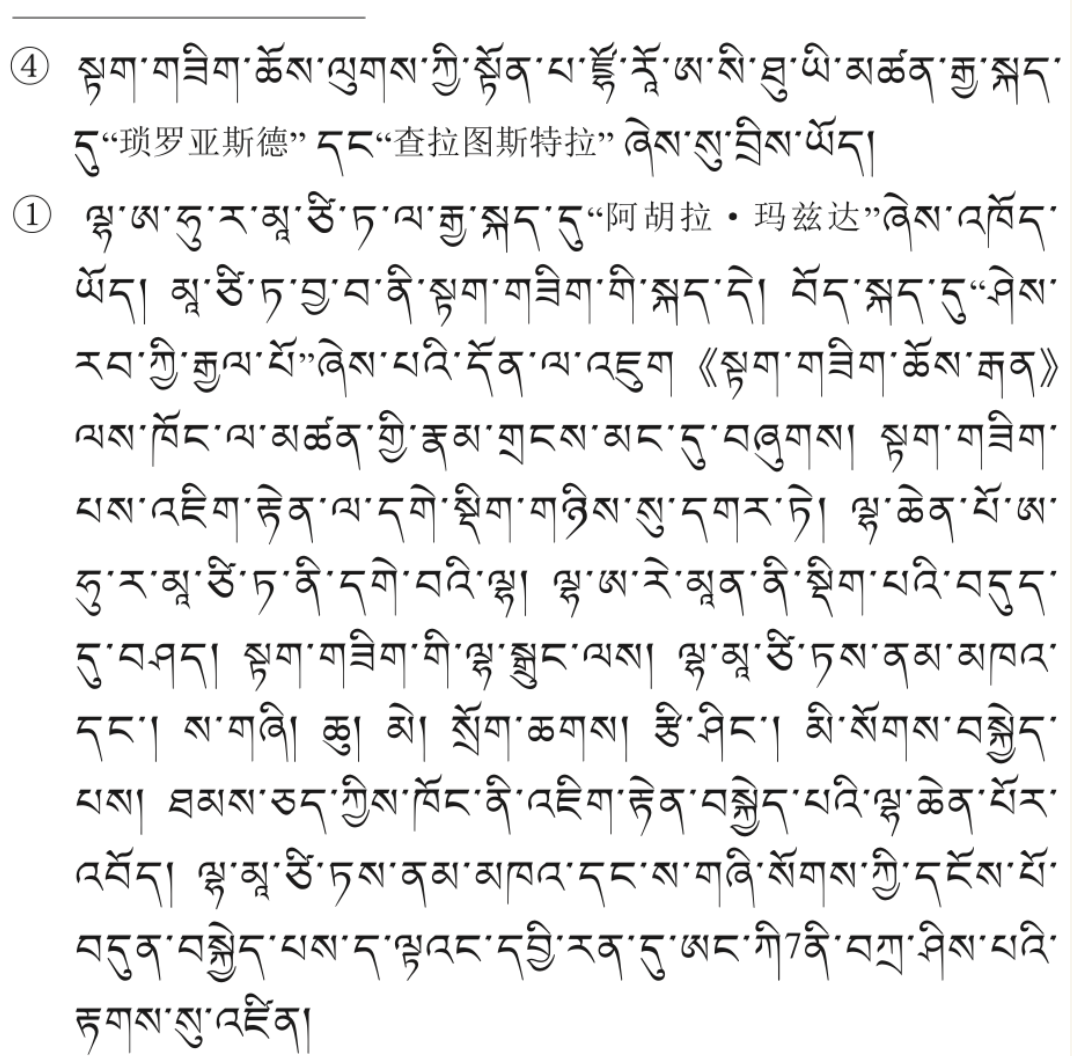 ④ སྟག་གཟིག་ཆོས་ལུགས་ཀྱི་སྟོན་པ་ཛྷོ་རཱོ་ཨ་སི་ཐུ་ཡི་མཚན་རྒྱ་སྐད་
དུ“琐罗亚斯德” དང“查拉图斯特拉” ཞེས་སུ་བྲིས་ཡོད།
① ལྷ་ཨ་ཧུ་ར་མཱ་ཙི་ཏ་ལ་རྒྱ་སྐད་དུ“阿胡拉・玛兹达”ཞེས་འཁོད་
ཡོད། མཱ་ཙི་ཏ་བྱ་བ་ནི་སྟག་གཟིག་གི་སྐད་དེ། བོད་སྐད་དུ“ཤེས་
རབ་ཀྱི་རྒྱལ་པོ”ཞེས་པའི་དོན་ལ་འཇུག 《སྟག་གཟིག་ཆོས་རྒན》
ལས་ཁོང་ལ་མཚན་གྱི་རྣམ་གྲངས་མང་དུ་བཞུགས། སྟག་གཟིག་
པས་འཇིག་རྟེན་ལ་དགེ་སྡིག་གཉིས་སུ་དགར་ཏེ། ལྷ་ཆེན་པོ་ཨ་
ཧུ་ར་མཱ་ཙི་ཏ་ནི་དགེ་བའི་ལྷ། ལྷ་ཨ་རེ་མཱན་ནི་སྡིག་པའི་བདུད་
དུ་བཤད། སྟག་གཟིག་གི་ལྷ་སྒྲུང་ལས། ལྷ་མཱ་ཙི་ཏས་ནམ་མཁའ་
དང་། ས་གཞི། ཆུ། མེ། སྲོག་ཆགས། རྩི་ཤིང་། མི་སོགས་བསྐྱེད་
པས། ཐམས་ཅད་ཀྱིས་ཁོང་ནི་འཇིག་རྟེན་བསྐྱེད་པའི་ལྷ་ཆེན་པོར་
འབོད། ལྷ་མཱ་ཙི་ཏས་ནམ་མཁའ་དང་ས་གཞི་སོགས་ཀྱི་དངོས་པོ་
བདུན་བསྐྱེད་པས་ད་ལྟའང་དབྱི་རན་དུ་ཨང་ཀི7ནི་བཀྲ་ཤིས་པའི་
རྟགས་སུ་འཛིན།